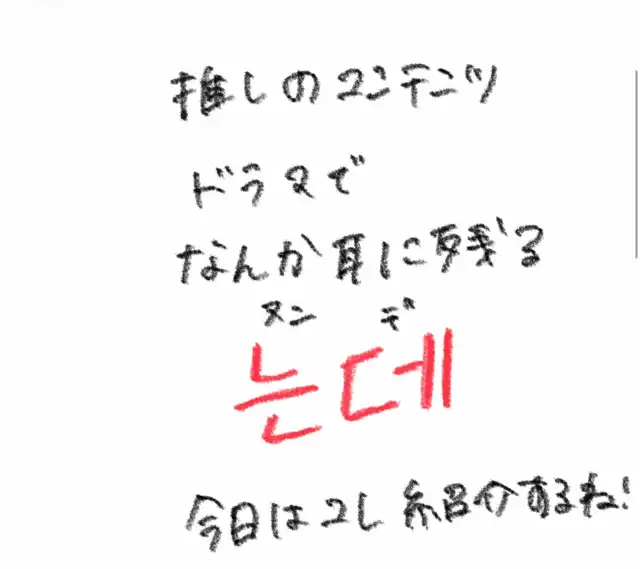 推しのコンテンツ
ドラマで
なんか耳に残る
ヌン デ
는데
今日はコレ紹介するね!